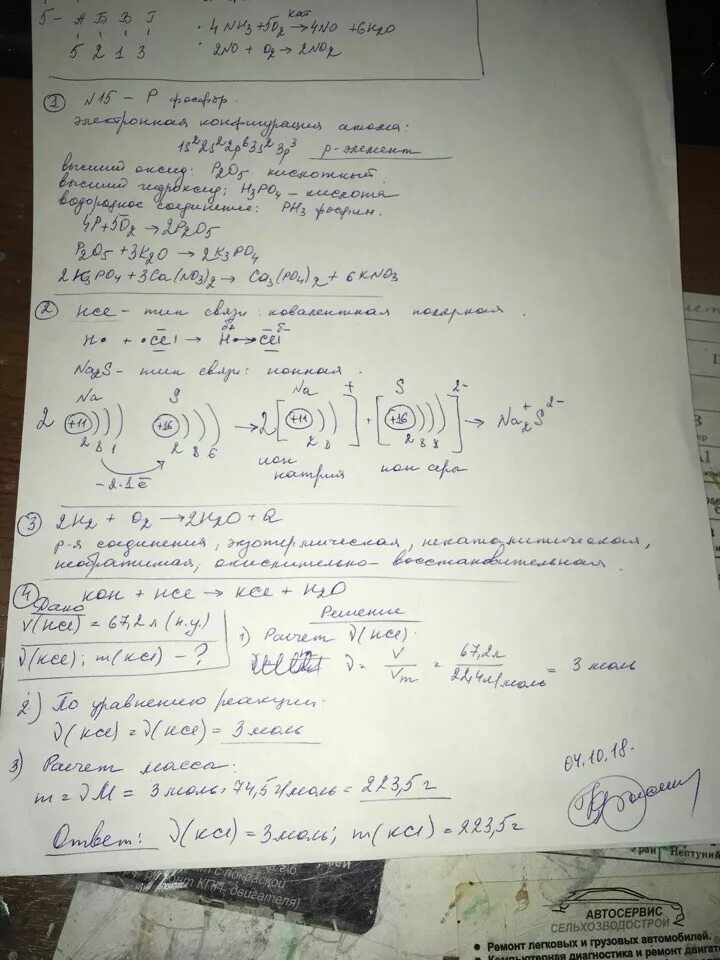 5 - А Б В Г
5 2 1 3
· 4NH₃ + 5O₂ кат→ 4NO + 6H₂O
· 2NO + O₂ → 2NO₂
① N15 – P фосфор.
электронная конфигурация атома:
1s²2s²2p⁶3s²3p³ p-элемент
высший оксид: P₂O₅ кислотный.
высший гидроксид: H₃PO₄ – кислота
водородное соединение: PH₃ фосфин.
4P + 5O₂ → 2P₂O₅
P₂O₅ + 3K₂O → 2K₃PO₄
2K₃PO₄ + 3Ca(NO₃)₂ → Ca₃(PO₄)₂ + 6KNO₃
② HCl – тип связи: ковалентная полярная.
H· + ·Cl → H δ+ → Cl δ-
Na₂S – тип связи: ионная.
Na S Na + S 2-
2 +11 ))) +16 ))) → 2 [ +11 )) ] + [ +16 ))) ] → Na₂⁺S²⁻
2 8 1 2 8 6 2 8 2 8 8
-2·1ē
ион натрия ион серы
③ 2H₂ + O₂ → 2H₂O + Q
р-я соединения, экзотермическая, некаталитическая,
необратимая, окислительно-восстановительная.
④ KOH + HCl → KCl + H₂O
Дано
V(HCl) = 67,2 л (н.у.)
ν(KCl); m(KCl) – ?
Решение
1) Расчет ν(HCl):
ν = V/Vm = 67,2л/22,4л/моль = 3 моль
2) По уравнению реакции:
ν(HCl) = ν(KCl) = 3 моль
3) Расчет массы:
m = νM = 3 моль · 74,5 г/моль = 223,5 г
04.10.18.
Ответ: ν(KCl) = 3 моль; m(KCl) = 223,5 г
двигателя)
Нептуний
АВТОСЕРВИС
СЕЛЬХОЗВОДСТРОЙ
• Ремонт легковых и грузовых автомобилей.
• Компьютерная диагностика и ремонт двигат